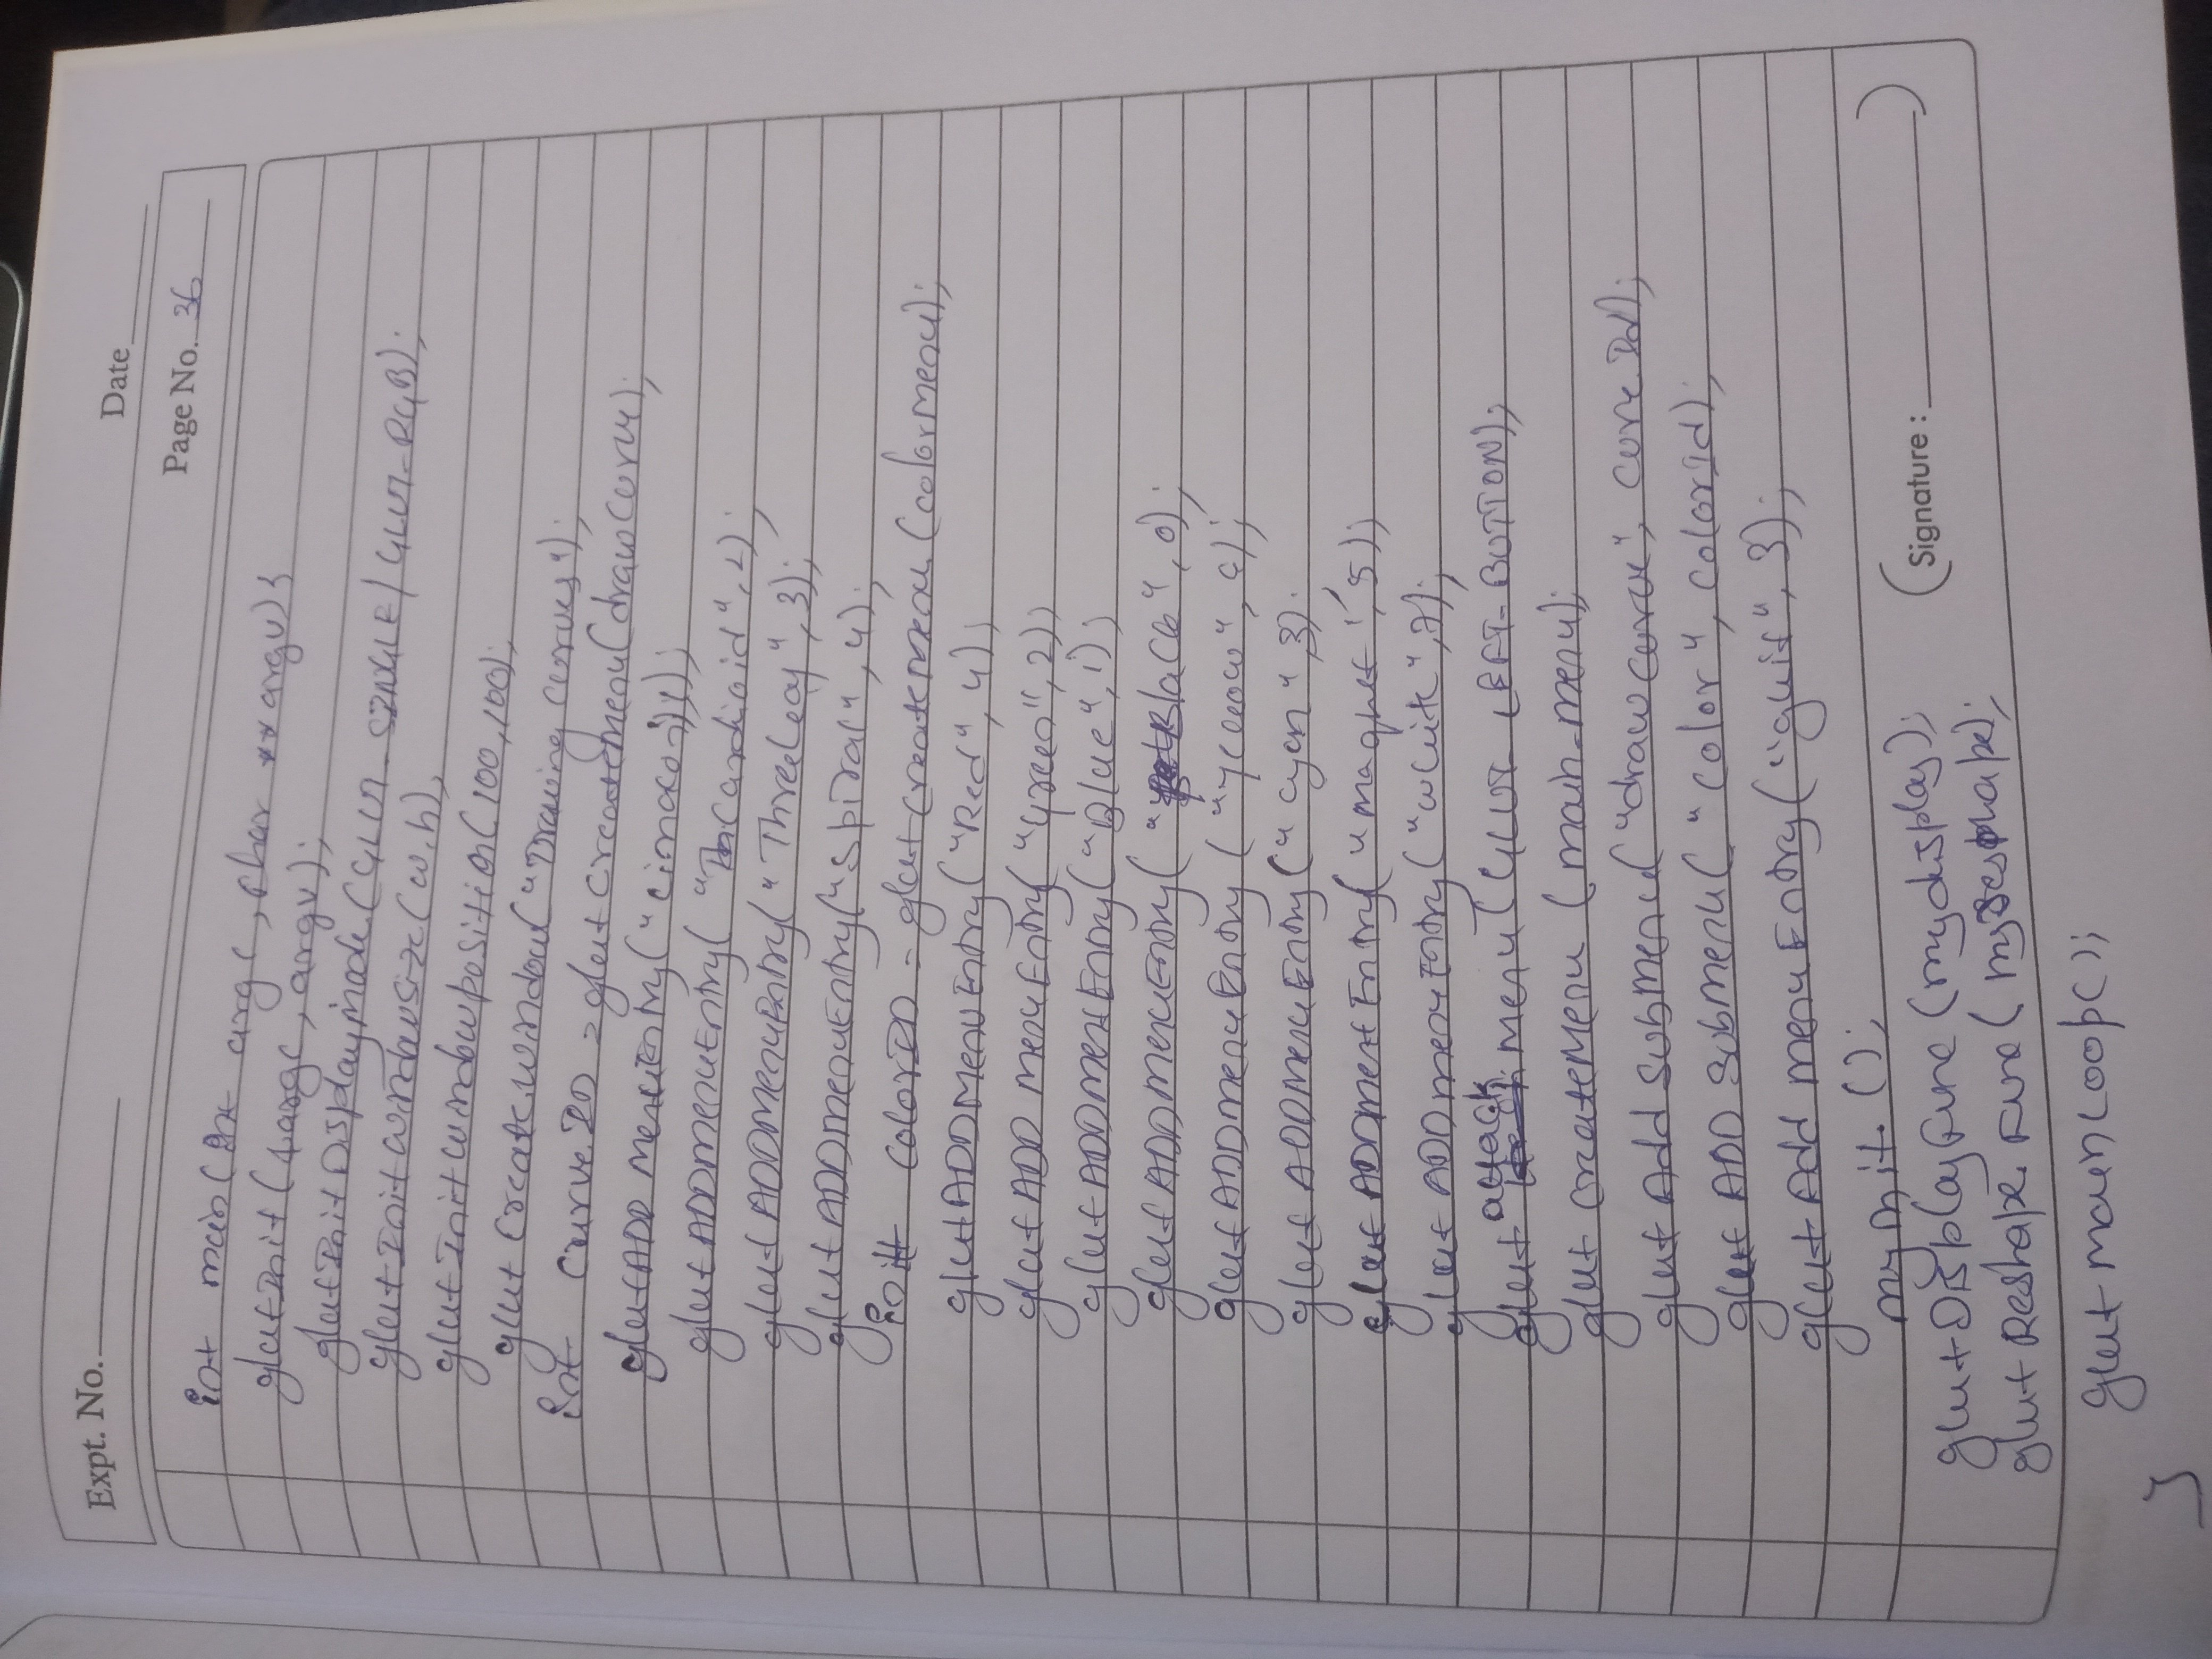 Expt. No.
Date
Page No. 36
int main(int argc, char **argv){
glutInit(&argc, argv);
glutInitDisplaymode(GLUT_SINGLE|GLUT_RGB);
glutInitwindowsize(w,h);
glutInitwindowposition(100,100);
glut Create window("Drawing curves");
int curveID = glutcreatemenu(drawCurve);
glutADD menuEntry("Limacon",1);
glutADDmenuEntry("Cardioid",2);
glutADDMenuEntry("Threeleaf",3);
glutADDmenuEntry("spiral",4);
int colorID = glutcreateMenu(colormenu);
glutADDMenuEntry("Red",4);
glutADD menuEntry("Green",2);
glutADDmenuEntry("Blue",1);
glutADDmenuEntry("Black",0);
glutADDmenuEntry("yellow",6);
glutADDmenuEntry("cyen",3);
glutADDmenuEntry("magnet",5);
glutADDmenuEntry("white",7);
glut attach Menu(GLUT_LEFT_BUTTON);
glut createMenu(main_menu);
glut Add submenu("drawcurve", curveId);
glut ADD submenu("color", colorid);
glut Add menuEntry("quit",3);
myinit();
glutDisplayFunc(mydisplay);
glutReshapeFunc(myreshape);
glutmainLoop();
}
(Signature: )